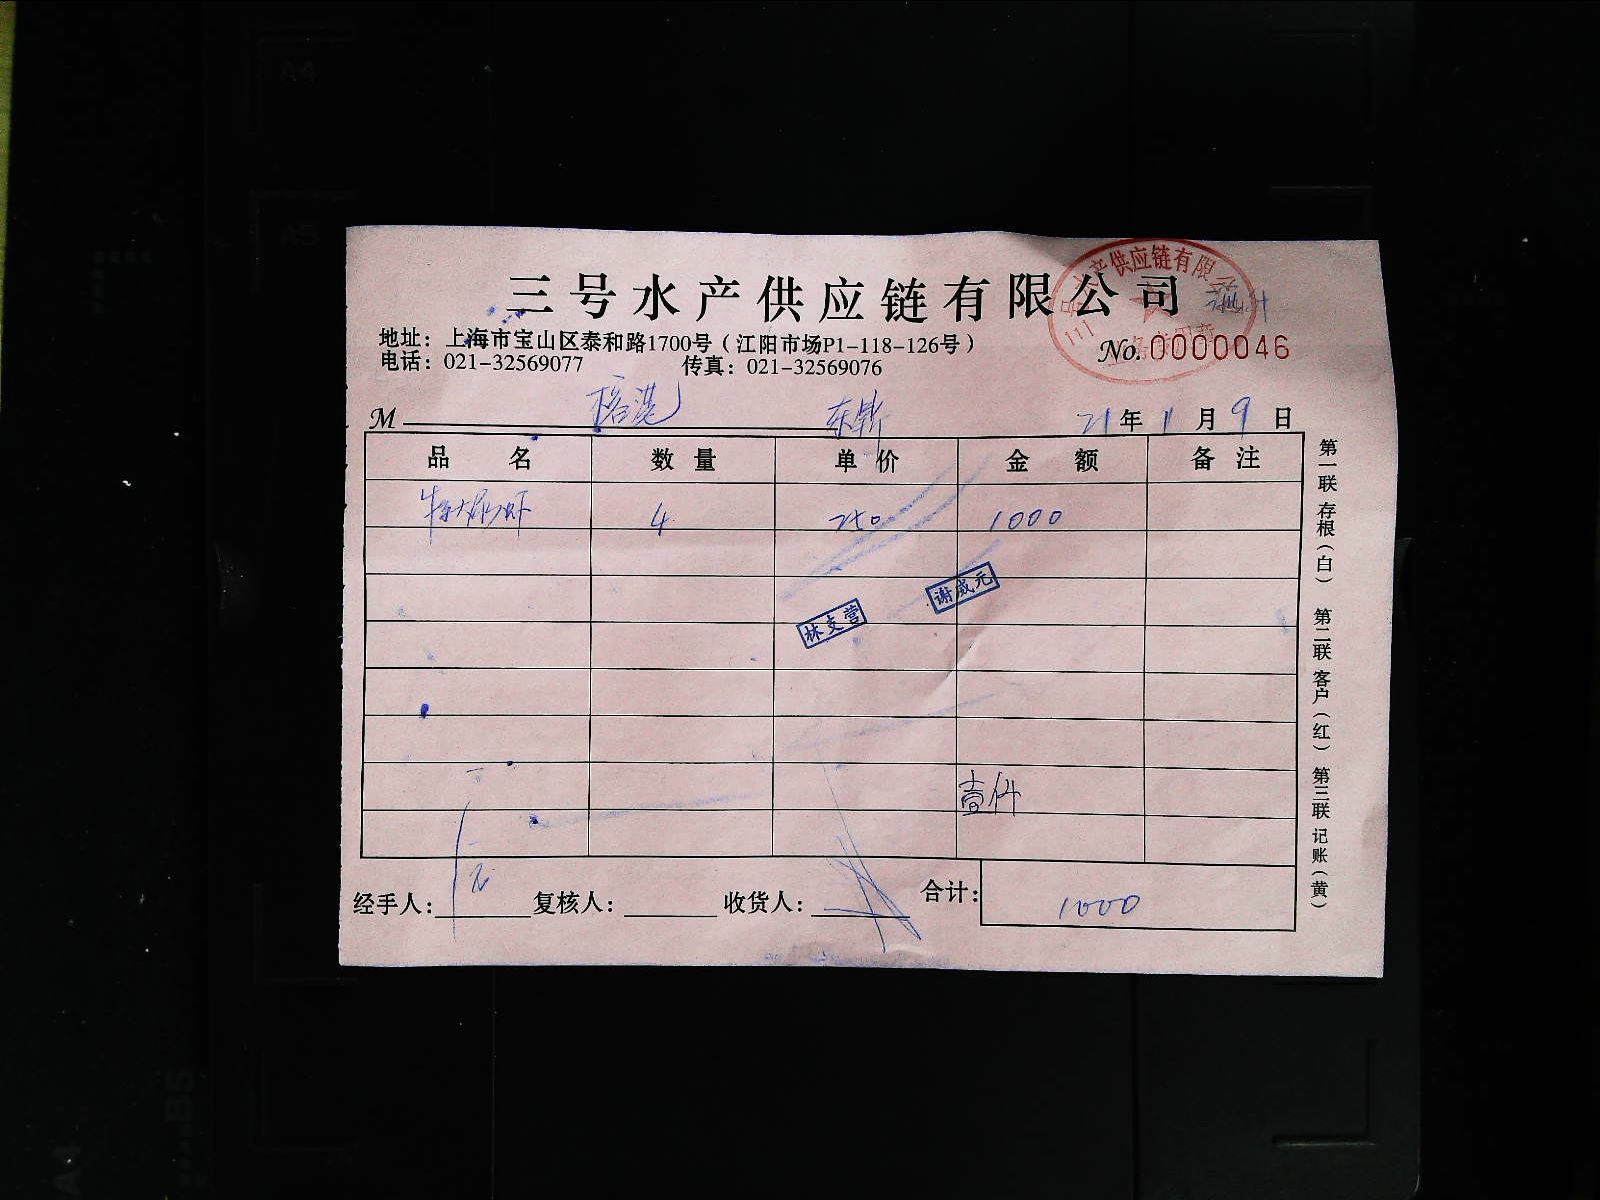 三号水产供应链有限公司
地址：上海市宝山区泰和路1700号（江阳市场P1-118-126号）
No.0000046
电话：021-32569077 传真：021-32569076
M 榕港 东鼎 21年11月9日
品名 数量 单价 金额 备注
4 250 1000
谢威元
林支营
壹件
经手人： 复核人： 收货人： 合计：1000
第一联 存根（白） 第二联 客户（红） 第三联 记账（黄）
水产供应链有限公
A4
A5
B5
A4